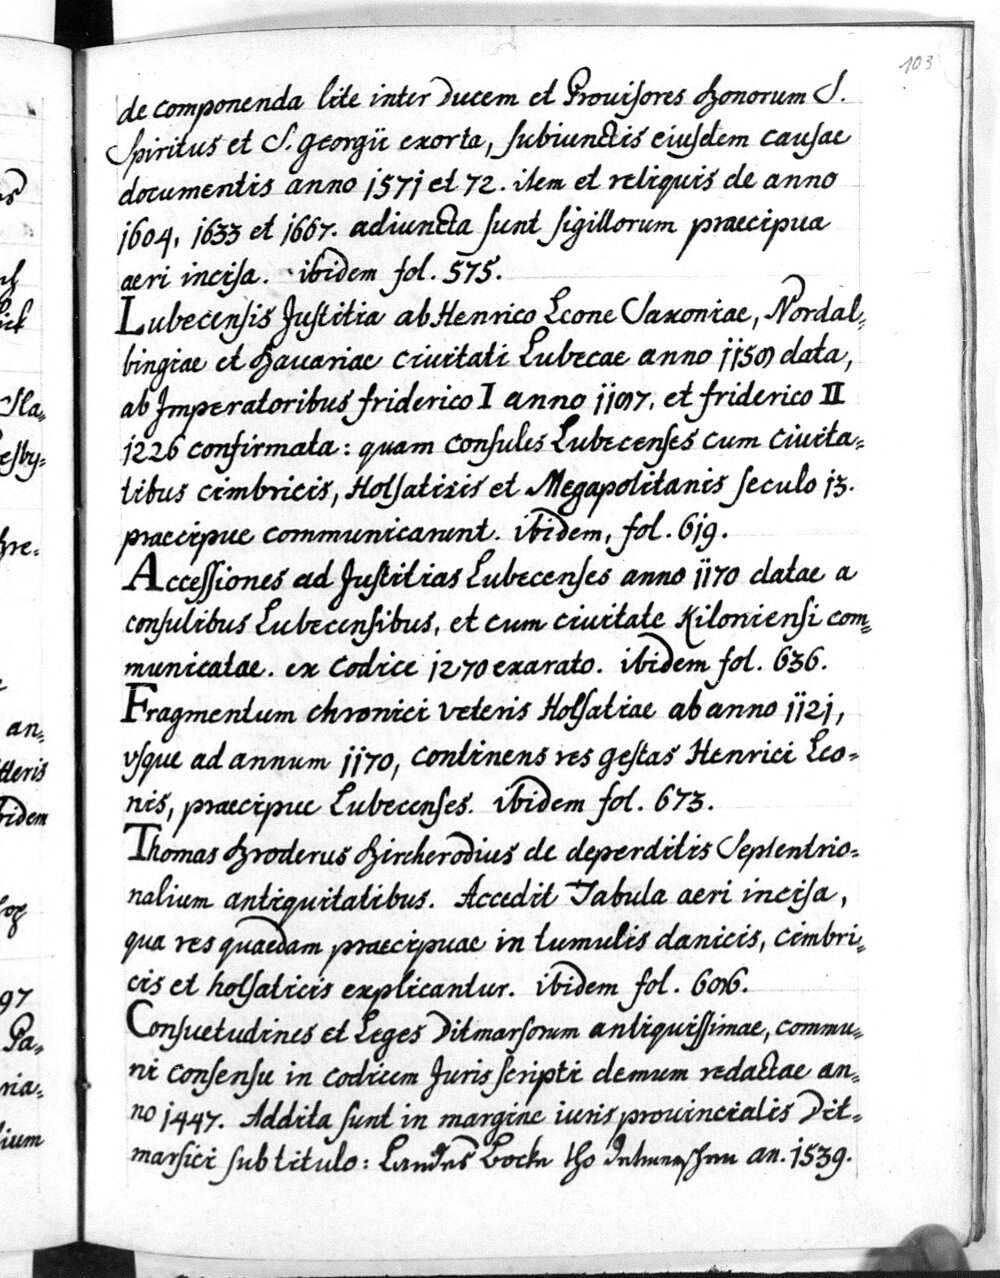 103
de componenda lite inter Ducem et Provisores Bonorum S.
Spiritus et S. Georgii exorta, subiunctis eiusdem causae
documentis anno 1571 et 72. item et reliquis de anno
1604, 1633 et 1667. adiuncta sunt sigillorum praecipua
aeri incisa. ibidem fol. 575.
Lubecensis Justitia ab Henrico Leone Saxoniae, Nordal-
bingiae et Bavariae civitati Lubecae anno 1158 data,
ab Imperatoribus friderico I anno 1187, et friderico II
1226 confirmata: quam consules Lubecenses cum civita-
tibus cimbricis, Holsaticis et Megapolitanis seculo 13.
praecipue communicarunt. ibidem, fol. 619.
Accessiones ad Justitias Lubecenses anno 1170 datae a
consulibus Lubecensibus, et cum civitate Kiloniensi com-
municatae. ex codice 1270 exarato. ibidem fol. 636.
Fragmentum chronici veteris Holsatiae ab anno 1121,
vsque ad annum 1170, continens res gestas Henrici Leo-
nis, praecipue Lubecenses. ibidem fol. 673.
Thomas Broderus Bircherodius de deperditis Septentrio-
nalium antiquitatibus. Accedit Tabula aeri incisa,
qua res quaedam praecipuae in tumulis danicis, cimbri-
cis et holsaticis explicantur. ibidem fol. 686.
Consuetudines et Leges Ditmarsorum antiquissimae, commu-
ni consensu in codicem Juris scripti demum redactae an-
no 1447. Addita sunt in margine iuris provincialis Dit-
marsici sub titulo: Landes Bocke tho an. 1539.